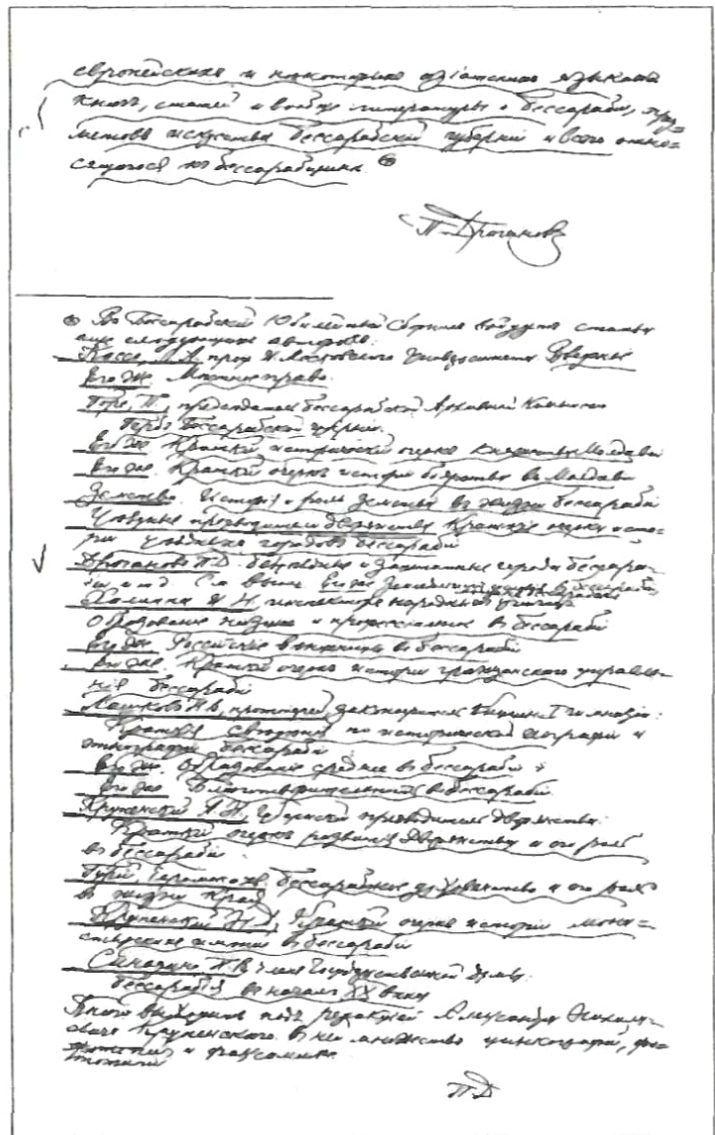 европейских и некоторых азіатских языках
книг, статей и вообще литературы о Бессарабіи, пред=
метовъ искусства Бессарабской губерніи и всего отно=
сящагося къ бессарабщинѣ.
П. Драгановъ
Въ Бессарабскій Юбилейный Сборникъ войдутъ статьи
еще слѣдующихъ авторовъ:
Кассо, Л. А. проф. И. Московского Университета.
Его же. Мѣстное право.
Горе, П., предсѣдатель бессарабской Архивной Комиссіи
Гербъ Бессарабской губерніи.
Его же. Краткій историческій очеркъ княжества Молдавіи
Его же. Краткій очеркъ исторіи боярства въ Молдавіи
Земство. Исторія и роль земства въ жизни Бессарабіи
Уѣздные предводители дворянства. Краткіе очерки исто=
ріи уѣздныхъ городовъ Бессарабіи
Драгановъ П. Д. Безуѣздные и Заштатные города Бессара=
біи и т. д. См. выше. Его же
Халиппа И. Н. инспекторъ народныхъ училищъ
Образование низшее и профессіон. въ Бессарабіи
Его же. Россійскіе въ Бессарабіи
Его же. Краткій очеркъ исторіи гражданского управле=
нія Бессарабіи
Лашковъ Н. В., протоіерей, законоучитель Кишин. I гимназіи:
Краткія свѣдѣнія по исторической географіи и
этнографіи Бессарабіи
Его же. Образованіе среднее въ Бессарабіи
Его же. Благотворительность въ Бессарабіи
Крупенскій А. Н., Губернскій предводитель дворянства.
Краткій очеркъ развитія Дворянства и его роль
въ Бессарабіи
Гурій, іеромонахъ, бессарабское духовенство и его роль
въ жизни края
Крупенскій Н. Д., Краткій очеркъ исторіи мона=
стырскихъ имѣній въ Бессарабіи
Синадино П. В. членъ Государственной Думы.
Бессарабія въ началѣ XX вѣка
Книга выходитъ подъ редакціей Александра Николае=
вича Крупенского. В ней множество цинкографій, фо=
тотипій и факсимиле.
П. Д